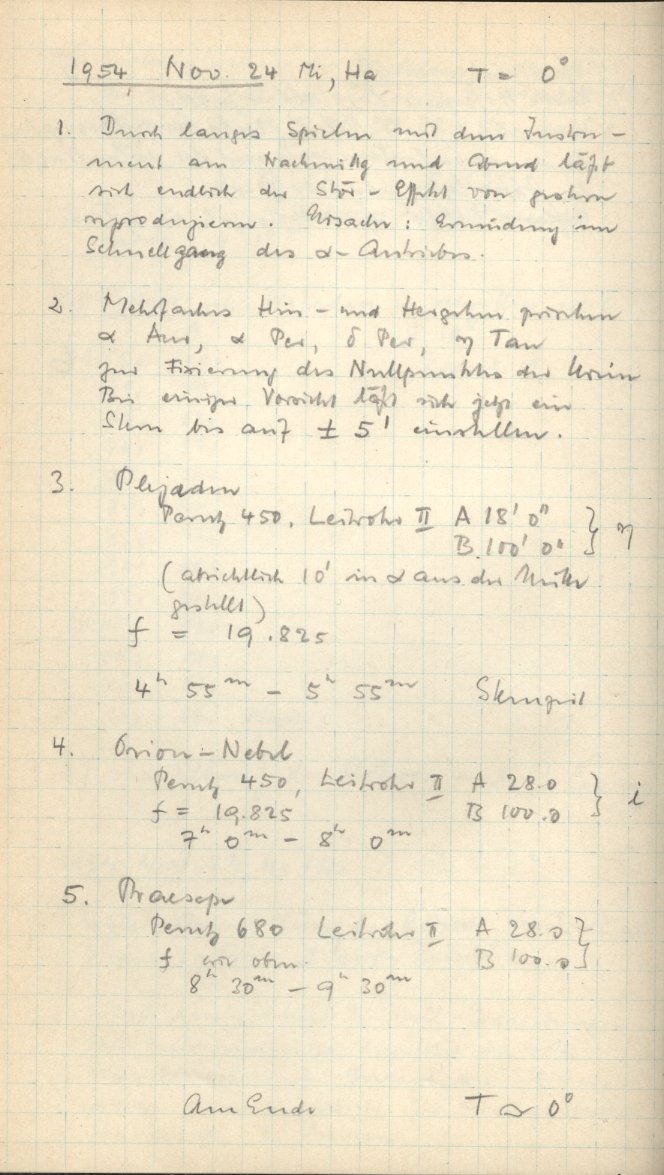 1954 Nov. 24 Mi, Ha T = 0°
1. Durch langes Spielen mit dem Instru-
ment am Nachmittag und Abend läßt
sich endlich der Stör-Effekt von gestern
reproduzieren. Ursache: Ermüdung im
Schnellgang des α-Antriebes.
2. Mehrfaches Hin- und Hergehen zwischen
α Aur, α Per, δ Per, η Tau
zur Fixierung des Nullpunktes der Kreise
Bei einiger Vorsicht läßt sich jetzt ein
Stern bis auf ± 5' einstellen.
3. Plejaden
Perutz 450, Leitrohr II A 18' 0" } η
B 100' 0"
(absichtlich 10' in α aus der Mitte
gestellt)
f = 19.825
4ʰ 55ᵐ - 5ʰ 55ᵐ Sternzeit
4. Orion-Nebel
Perutz 450, Leitrohr II A 28.0 } i
f = 19.825 B 100.0
7ʰ 0ᵐ - 8ʰ 0ᵐ
5. Praesepe
Perutz 680 Leitrohr II A 28.0 }
f wie oben. B 100.0
8ʰ 30ᵐ - 9ʰ 30ᵐ
Am Ende T ≈ 0°